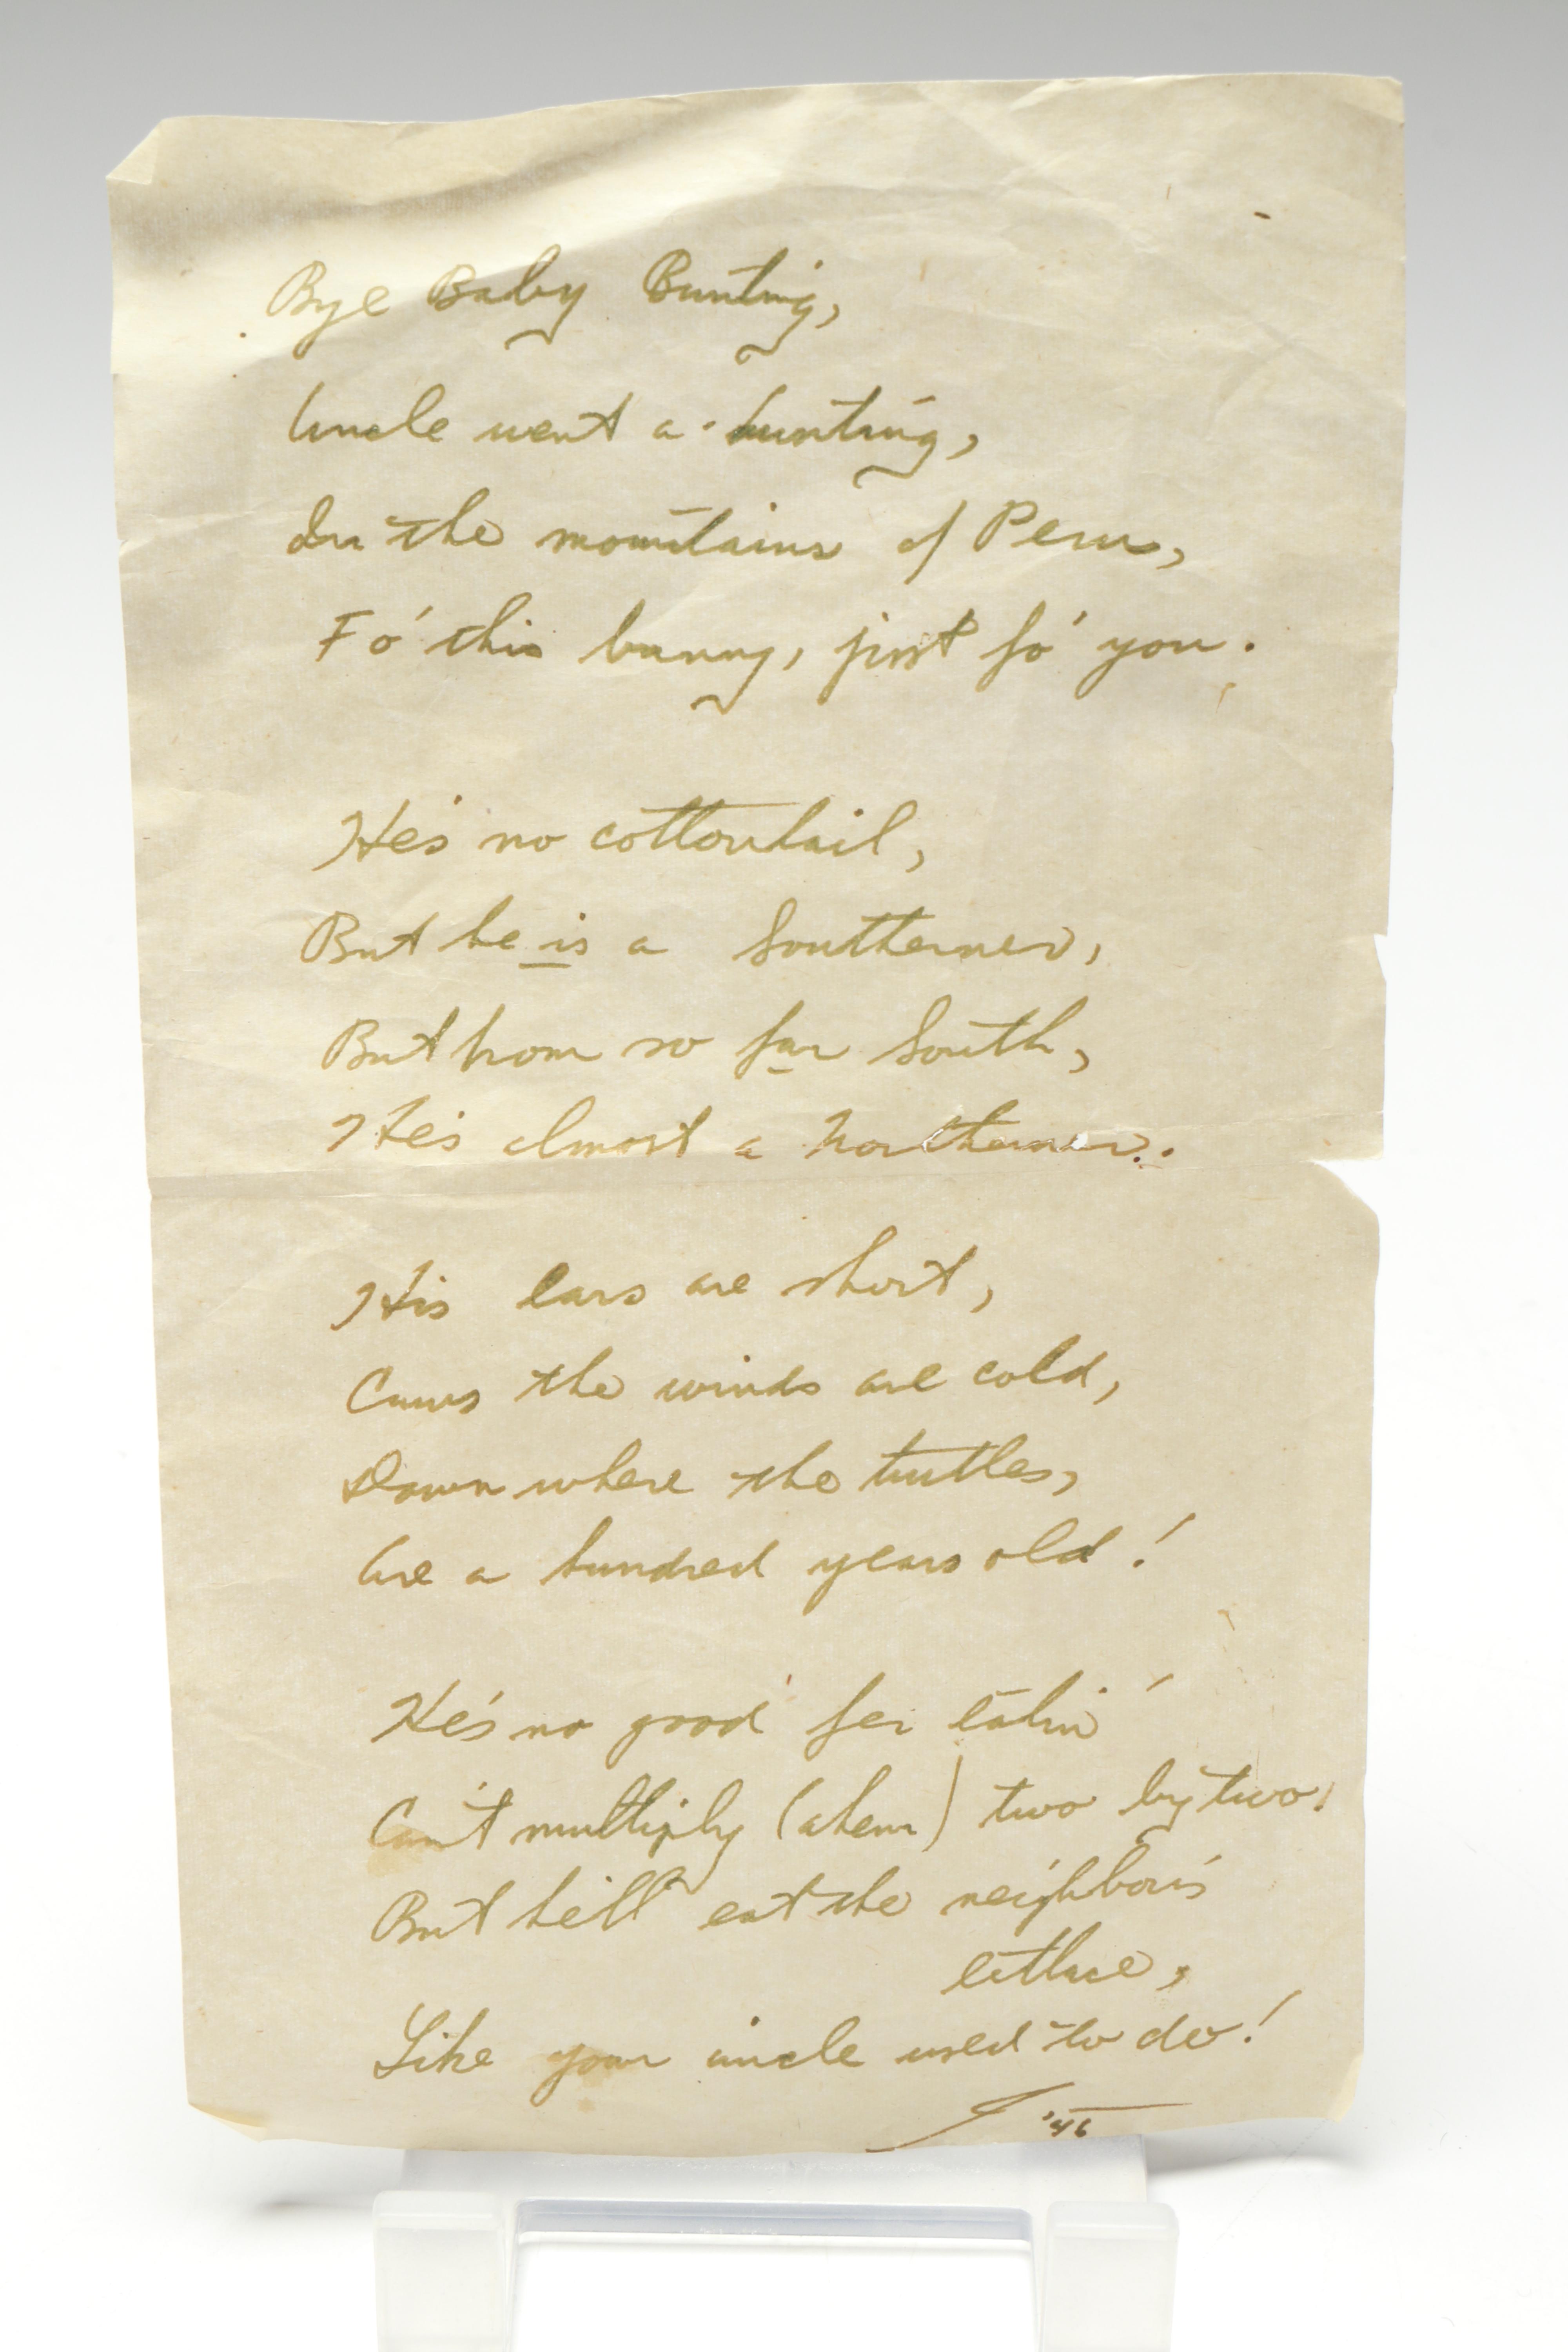 Bye Baby Bunting,
Uncle went a-hunting,
In the mountains of Peru,
Fo' this bunny, just fo' you.
He's no cottontail,
But he is a Southerner,
But from so far South,
He's almost a Northerner.
His ears are short,
Cuus the winds are cold,
Down where the turtles,
Are a hundred years old!
He's no good fer eatin'
Can't multiply (ahem) two by two!
But he'll eat the neighbor's
lettuce,
Like your uncle used to do!
J '46